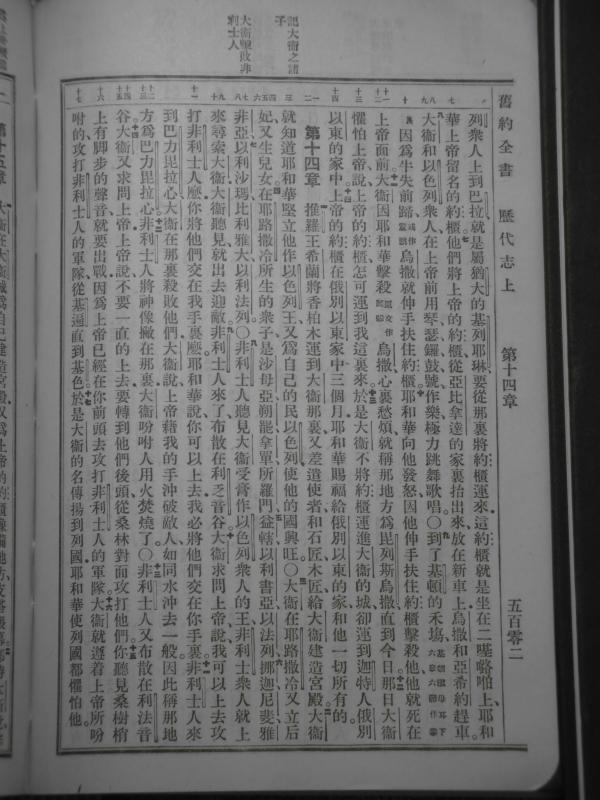 舊約全書　歷代志上　第十四章　五百零二
記大衞之諸子
大衞擊敗非利士人
列衆人上到巴拉就是屬猶大的基列耶琳要從那裏將約櫃運來這約櫃就是坐在二𠼻𡀩啪上耶和
華上帝留名的約櫃他們將上帝的約櫃從亞比拿達的家裏抬出來放在新車上烏撒和亞希約趕車
大衞和以色列衆人在上帝前用琴瑟鑼鼓號作樂極力跳舞歌唱〇到了基頓的禾塲
因爲牛失前蹄烏撒就伸手扶住約櫃耶和華向他發怒因他伸手扶住約櫃擊殺他他就死在
上帝面前大衞因耶和華擊殺烏撒心裏愁煩就稱那地方爲毘列斯烏撒直到今日那日大衞
懼怕上帝說上帝的約櫃怎可運到我這裏來於是大衞不將約櫃運進大衞的城卻運到迦特人俄別
以東的家中上帝的約櫃在俄別以東家中三個月耶和華賜福給俄別以東的家和他一切所有的
第十四章　推羅王希蘭將香柏木運到大衞那裏又差遣使者和石匠木匠給大衞建造宮殿大衞
就知道耶和華堅立他作以色列王又爲自己的民以色列使他的國興旺〇大衞在耶路撒冷又立后
妃又生兒女在耶路撒冷所生的衆子是沙母亞朔罷拿單所羅門益轄以利書亞以法列挪迦尼斐雅
非亞以利沙瑪比利雅大以利法列〇非利士人聽見大衞受膏作以色列衆人的王非利士衆人就上
來尋索大衞大衞聽見就出去迎敵非利士人來了布散在利乏音谷大衞求問上帝說我可以上去攻
打非利士人麽你將他們交在我手裏麽耶和華說你可以上去我必將他們交在你手裏非利士人來
到巴力毘拉心大衞在那裏殺敗他們大衞說上帝藉我的手沖破敵人如同水沖去一般因此稱那地
方爲巴力毘拉心非利士人將神像撇在那裏大衞吩咐人用火焚燒了〇非利士人又布散在利法音
谷大衞又求問上帝上帝說不要一直的上去要轉到他們後頭從桑林對面攻打他們你聽見桑樹梢
上有脚步的聲音就要出戰因爲上帝已經在你前頭去攻打非利士人的軍隊大衞就遵着上帝所吩
咐的攻打非利士人的軍隊從基遍直到基色於是大衞的名傳揚到列國耶和華使列國都懼怕他